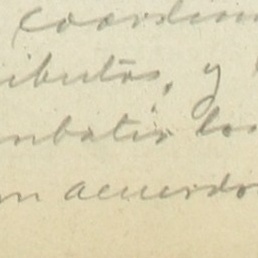 coordin
ibutos, y
mbatir los
un acuerdo